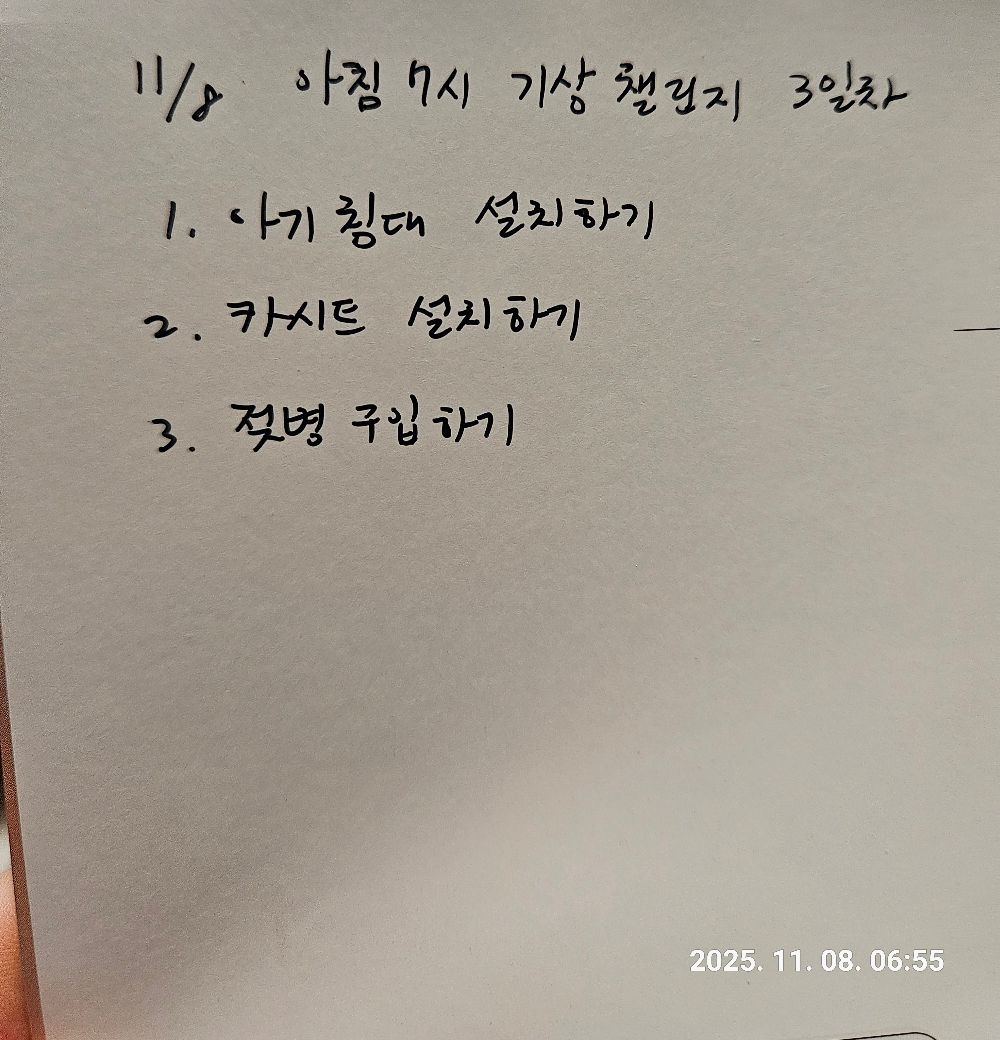 11/8 아침 7시 기상 챌린지 3일차
1. 아기 침대 설치하기
2. 카시트 설치하기
3. 젖병 구입하기
2025. 11. 08. 06:55